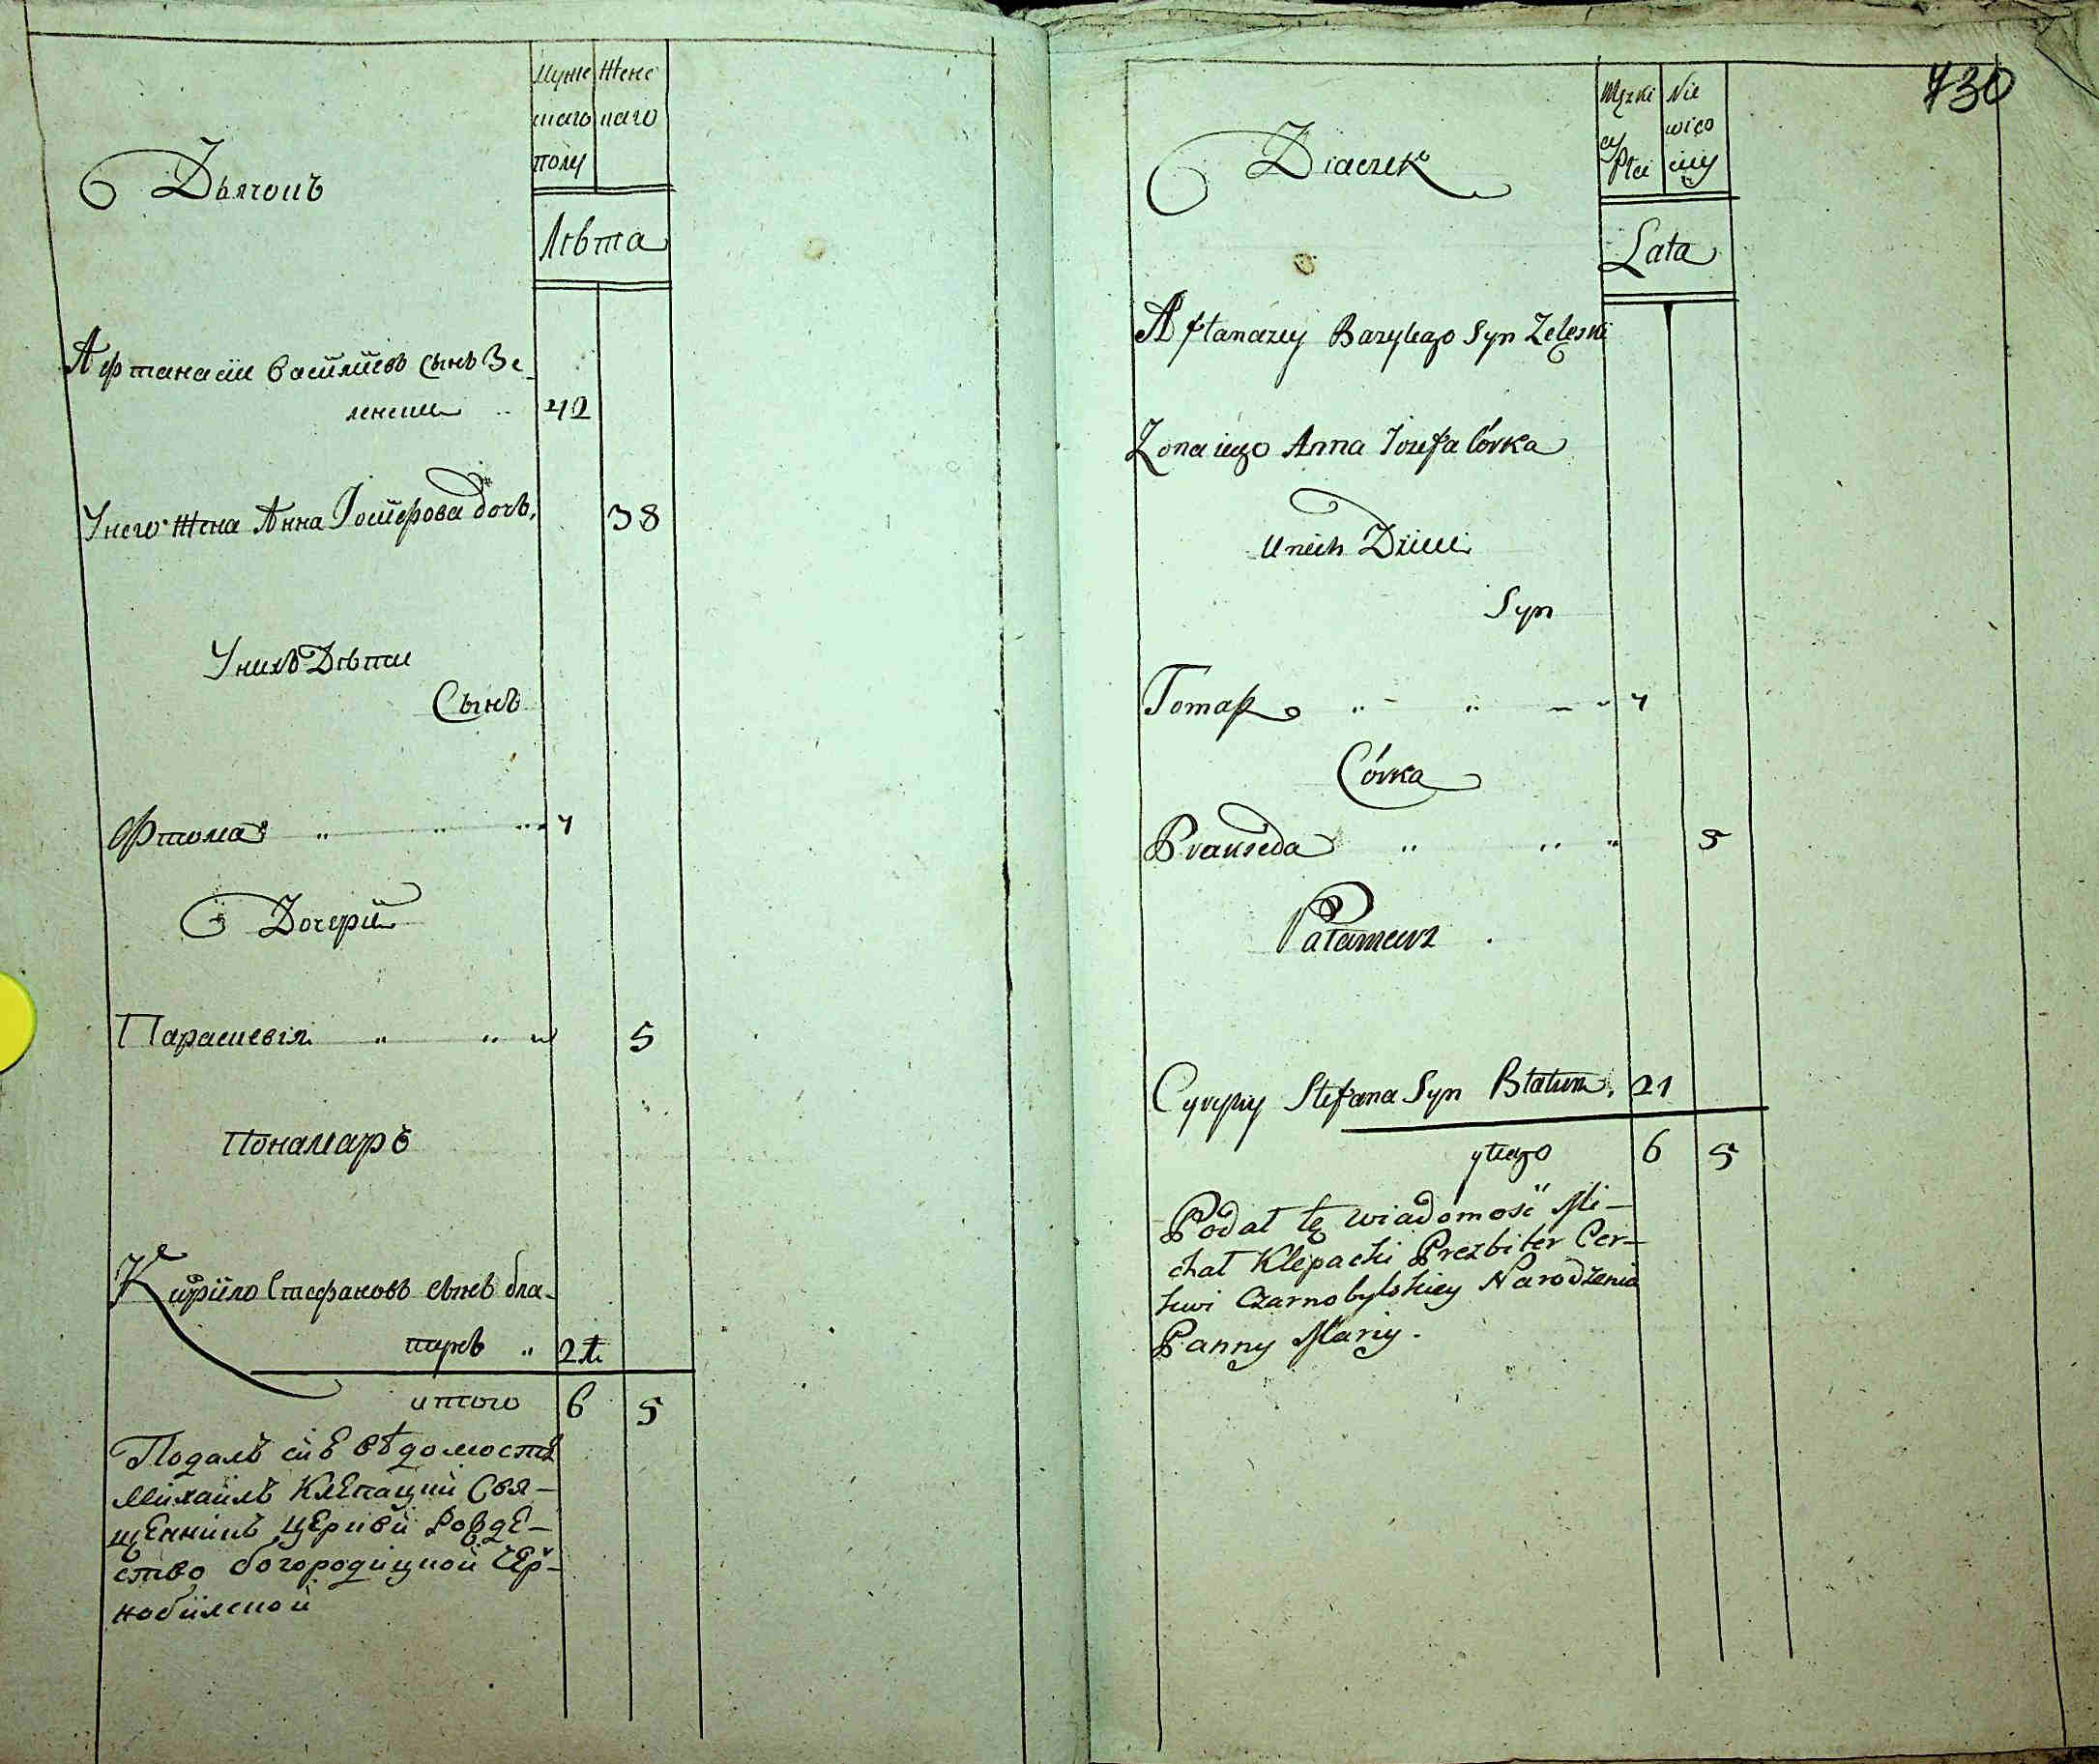 Муже Жене
скаго скаго
полу
Дьячокъ
Лѣта
Афтанасіи Василиевъ сынъ Зе-
ленски 42
У него жена Анна Іосифова дочь, 38
У нихъ Дѣти
Сынъ
Фтома 4
Дочери
Парасковія 5
Понамаръ
Кирило Стефановъ сынъ бла-
21
итого 6 5
Подалъ сию вѣдомость
Михаилъ Клепацкий Свя-
щенникъ церкви Рождє-
ство богородицкой Чер-
нобилской
730
Męzki Nie
ey wieś
Płci ciiy
Diaczek
Lata
Aftanazy Bazylego Syn Zeleski
Zona iego Anna Iozefa Córka
U nich Dzieci
Syn
Tomasz 4
Córka
Praxseda 5
Pałamarz
Cyrylly Stefana Syn 21
ytego 6 5
Podał tę wiadomość Mi-
chał Klepacki Prezbiter Cer-
kwi Czarnobylskiey Narodzenia
Panny Maryi.